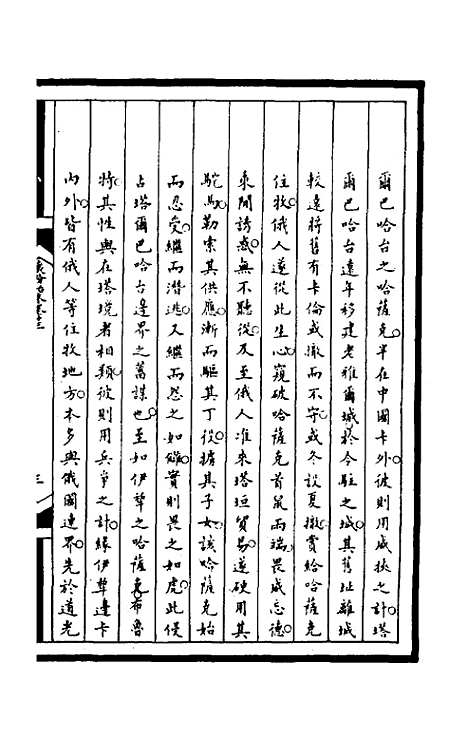 爾巴哈台之哈薩克半在中國卡外彼則用威挾之計塔
爾巴哈台遠年移建老雅爾城於今駐之城其舊址離城
較遠將舊有卡倫或撤而不守或冬設夏撤賞給哈薩克
住牧俄人遂從此生心窺破哈薩克首鼠兩端畏威忘德
乘間誘惑無不聽從及至俄人准來塔垣貿易遂硬用其
駝馬勒索其供應漸而驅其丁役擄其子女該哈薩克始
而忍受繼而潛逃又繼而怨之如讎實則畏之如虎此侵
占塔爾巴哈台邊界之蓄謀也至如伊犂之哈薩克布魯
特其性與在塔境者相類彼則用兵爭之計緣伊犂邊卡
內外皆有俄人等住牧地方本多與俄國連界先於道光
三